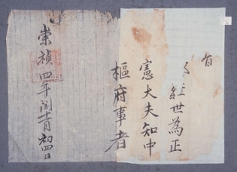 旨
經世為正
憲大夫知中
樞府事者
崇禎四年閏十一月初四日